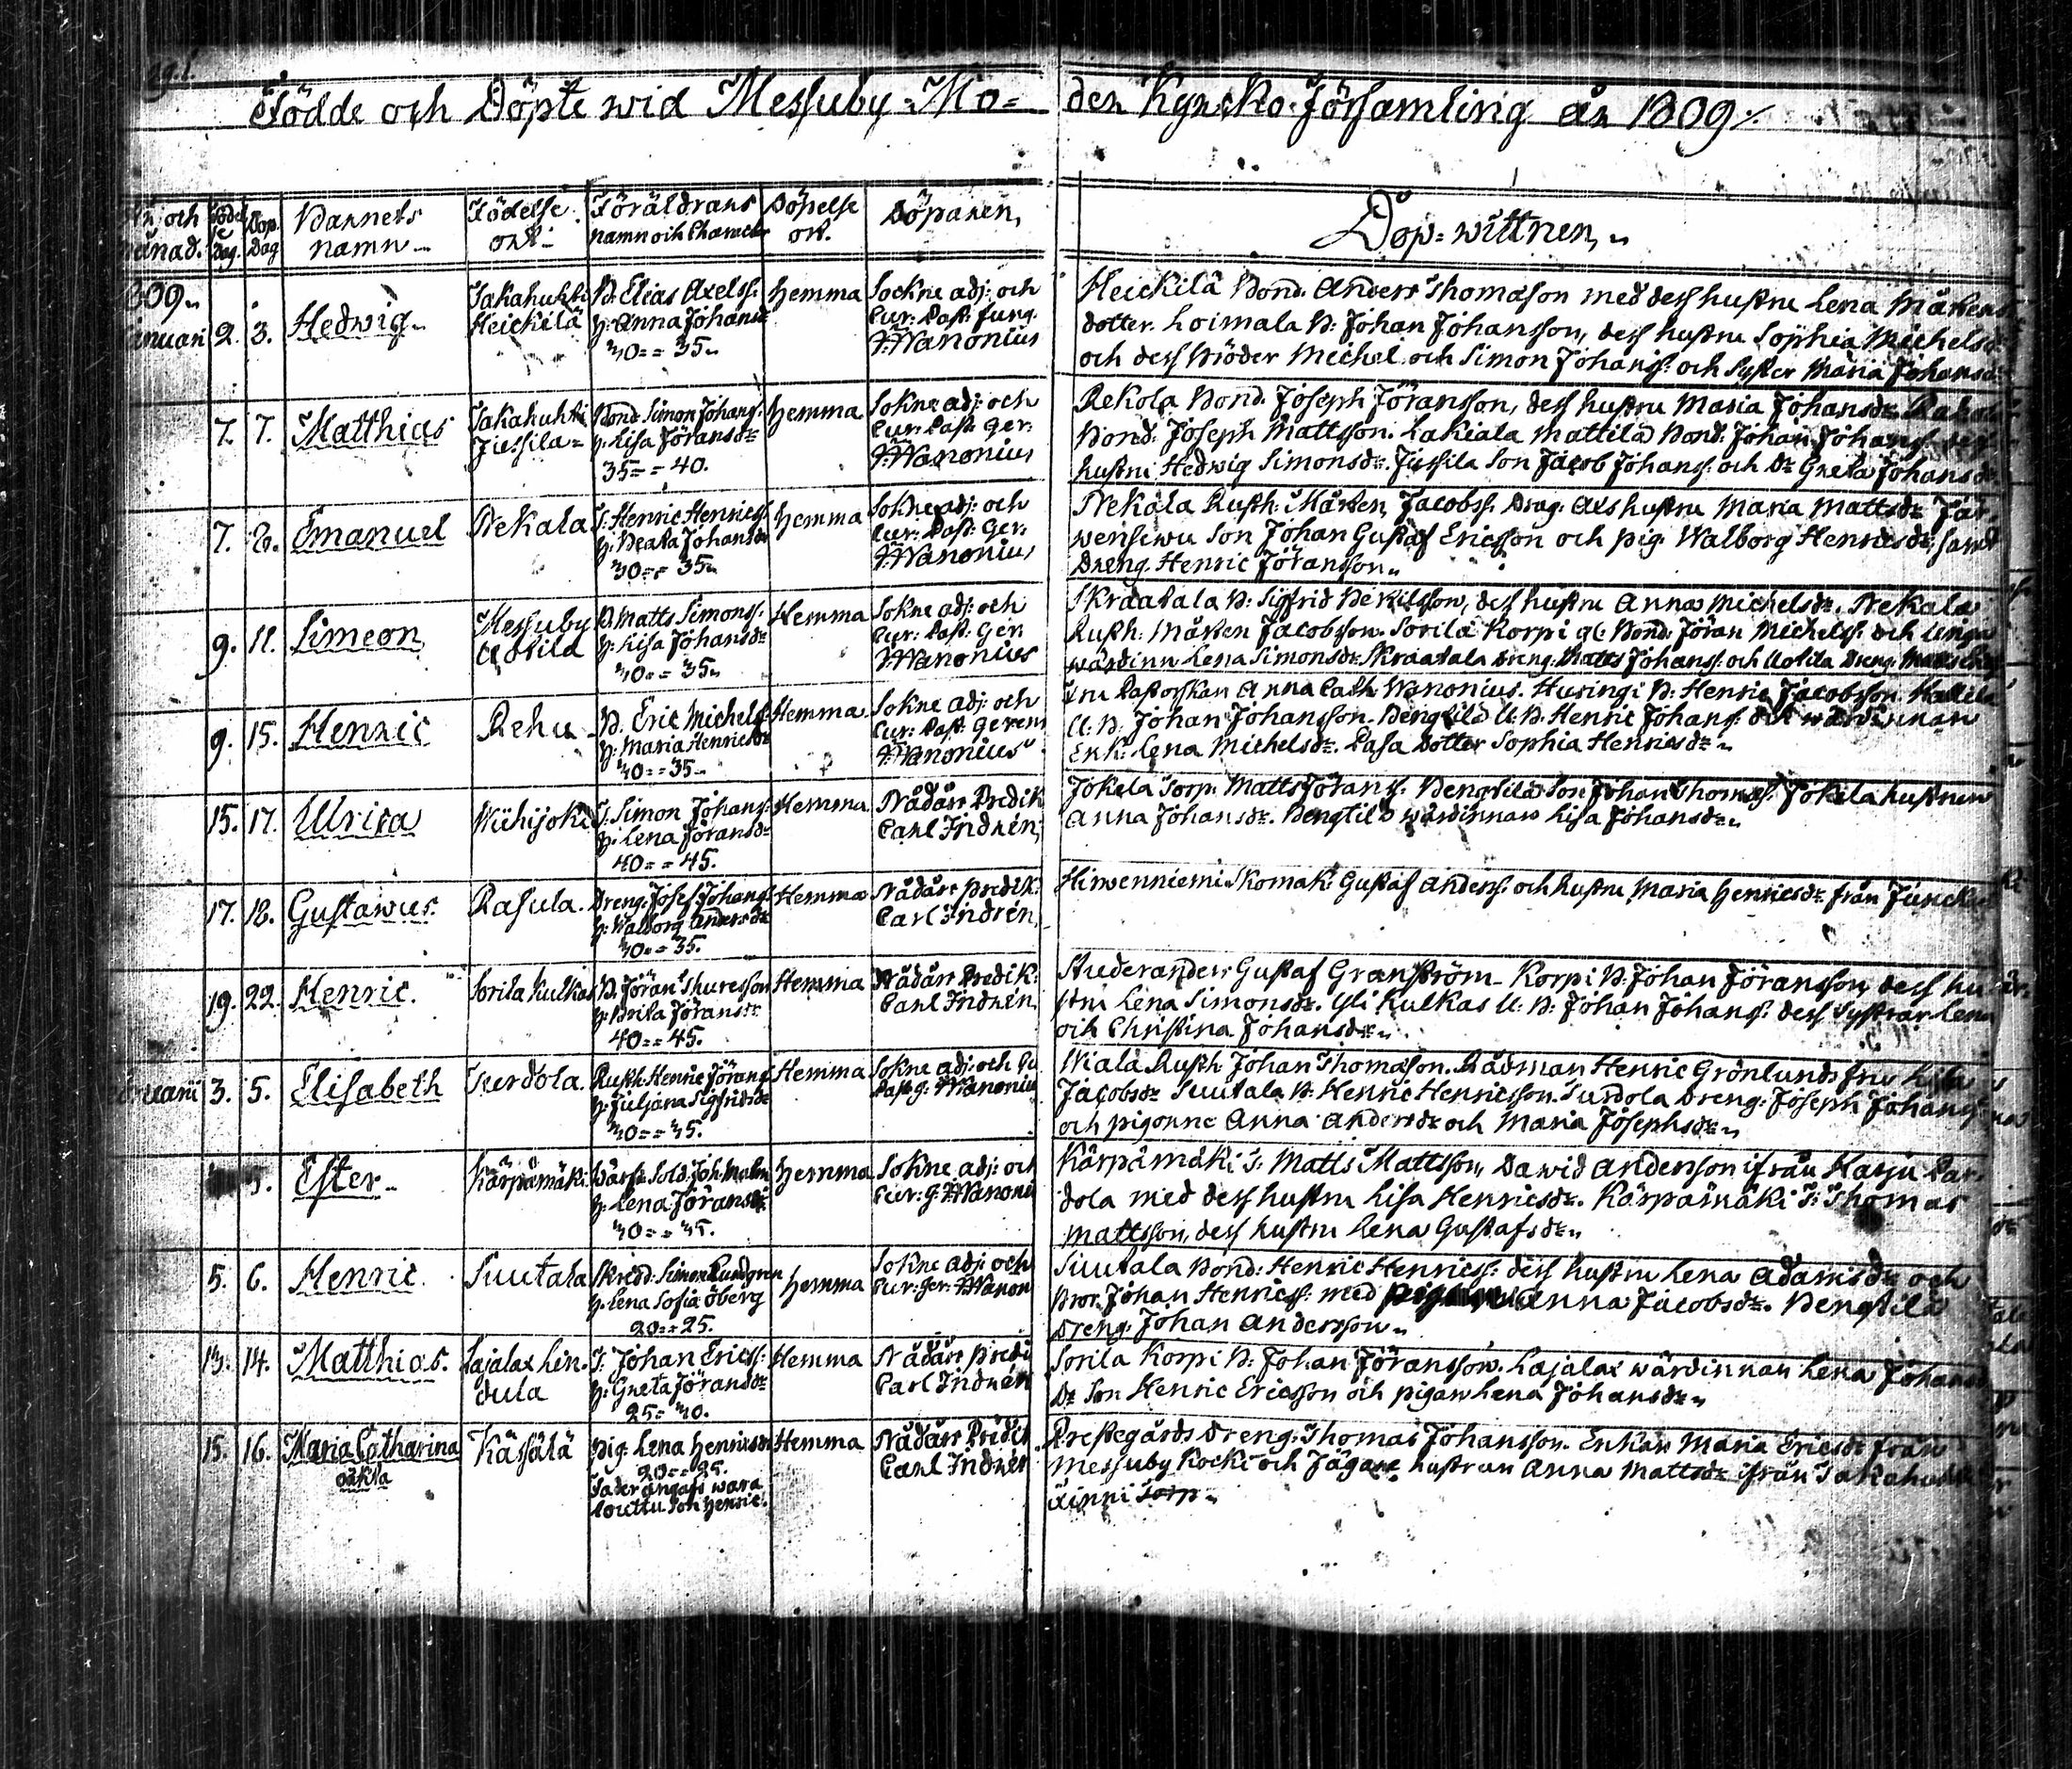 Födde och Döpte wid Messuby-Mo= der Kyrcko-Församling år 1809
Barnets namn
Födelse ort
Föräldrars namn och Character
Döpelse ort
Döparen,
Döp-wittnen,
2. 3. Hedwig
Takahuhti Heickilä
B. Elias Axelss:
h: Anna Johansd
30 = = 35
Hemma
Sockne adj: och
Cur: Past: fung.
Wanonius
Heickilä Bond. Anders Thomason med dess hustru Lena Mårtens
dotter. Loimala B: Johan Johansson, dess hustru Sophia Michelsd:
och dess Bröder Michel och Simon Johanss: och Syster Maria Johansd:
7. 7. Matthias
Takahuhti Jussila
Bond. Simon Johanss.
h: Lisa Göransdr
35 = = 40.
Hemma
Sokne adj: och
Cur: Past: Ger:
Wanonius
Rekola Bond. Joseph Jöransson, dess hustru Maria Johansdr
Bond: Joseph Mattsson. Lakiala Mattila Bond: Johan Johanss.
hustru Hedwig Simonsdr. Jussila Son Jacob Johanss: och Dr Greta Johansdr
7. 8. Emanuel
Nekala
T: Henric Henricss.
h: Beata Johansdr
30 = = 35
Hemma
Sokne adj: och
Cur: Past: Ger:
Wanonius
Nekala Rusth: Mårten Jacobss. Drag: Ars hustru Maria Mattsdr Jär
wensiwu Son Johan Gustaf Ericsson och pig: Walborg Henricsdr, samt
Dreng. Henric Jöransson
9. 11. Simeon
Messuby Uotila
B. Matts Simonss.
h: Lisa Johansdr
30 = = 35
Hemma
Sokne adj: och
Cur: Past: Ger
Wanonius
Skraatala B: Sigfrid Bertilsson, dess hustru Anna Michelsdr. Nekala
Rusth: Mårten Jacobsson. Sorila Korpi gl: Bond. Jöran Michelss: och Unga
wärdinn Lena Simonsdr Skraatala Dreng: Matts Johanss: och Uotila Dreng:
9. 15. Henric
Rehu
B. Eric Michelss:
h: Maria Henricsdr
30 = = 35
Hemma
Sokne adj: och
Cur: Past: Gerens
Wanonius
Fru Pastorskan Anna Cath: Wanonius. Husingi B: Henric Jacobsson
U: B: Johan Johansson. Bengtilä U: B: Henric Johanss: och wärdinnan
Enk: Lena Michelsdr. Pasa Dotter Sophia Henricsdr
15. 17. Ulrica
Wichijoki
T: Simon Johans:
h: Lena Jöransdr
40 = = 45.
Hemma
Nådårs Predik
Carl Indrén,
Jokela Torp: Matts Jöranss: Bengtilä Son Johan Thomass: Jokela hustrun
Anna Johansdr. Bengtilä wärdinnan Lisa Johansdr
17. 18. Gustawus.
Rasula.
Dreng. Josef Johanss:
h: Walborg Andersdr
30 = = 35.
Hemma
Nådårs predik:
Carl Indrén,
Hirwenniemi Skomak: Gustaf Anderss: och hustru Maria Henricsdr från
19. 22. Henric.
Sorila Kulkas
B. Jöran Thuresson
h: Brita Jöransdr
40 = = 45.
Hemma
Nådårs Predik:
Carl Indrén
Studeranden Gustaf Granström. Korpi B: Johan Jöransson, dess hu
stru Lena Simonsdr. Yli Kulkas U: B: Johan Johanss: dess Systrar Lena
och Christina Johansdr
3. 5. Elisabeth
Turdola.
Rusth Henric Jöranss
h: Juljana Sigfridsdr
30 = = 35.
Hemma
Sokne adj: och Cu
Past: g: Wanonius
Wiala Rusth Johan Thomason. Rådman Henric Grönlunds fru
Jacobsdr Suutala B: Henric Henricsson. Turdola Dreng: Joseph Johanss
och pigorne Anna Andersdr och Maria Josephsdr
5. Ester
Kärpämäki
Wärf: Sold: Joh: Malm
h: Lena Jöransdr
30 = = 35.
Hemma
Sokne adj: och
Cur: g: Wanoni
Kärpämäki T: Matts Mattsson, Dawid Andersson ifrån Harju Par
dola med dess hustru Lisa Henricsdr. Kärpämäki T: Thomas
Mattsson, dess hustru Lena Gustafsdr
5. 6. Henric.
Suutala
Skredd: Simon Lundgren
h: Lena Sofia Öberg
20 = = 25.
Hemma
Sokne adj: och
Cur: Ger: Wanon
Suutala Bond: Henric Henricss: dess hustru Lena Adamsdr och
Bror Johan Henricss: med Anna Jacobsdr. Bengtilä
Dreng: Johan Andersson
13. 14. Matthias.
Lajalax Lin-
dula
T: Johan Ericss:
h: Greta Jöransdr
25 = 30.
Hemma
Nådårs predi
Carl Indrén
Sorila Korpi B: Johan Jöransson. Lajalax wärdinnan Lena Johans
Dr Son Henric Ericsson och pigan Lena Johansdr
15. 16. Maria Catharina
oäkta
Kässälä
pig: Lena Henricsdr
20 = = 25.
Fader angafs wara
Son Henric.
Hemma
Nådårs Predik
Carl Indrén
Prestegårds Dreng: Thomas Johansson. Enkan Maria Ericsdr från
Messuby Kocki och Jägare hustrun Anna Mattsdr ifrån Takahuhti
Torp